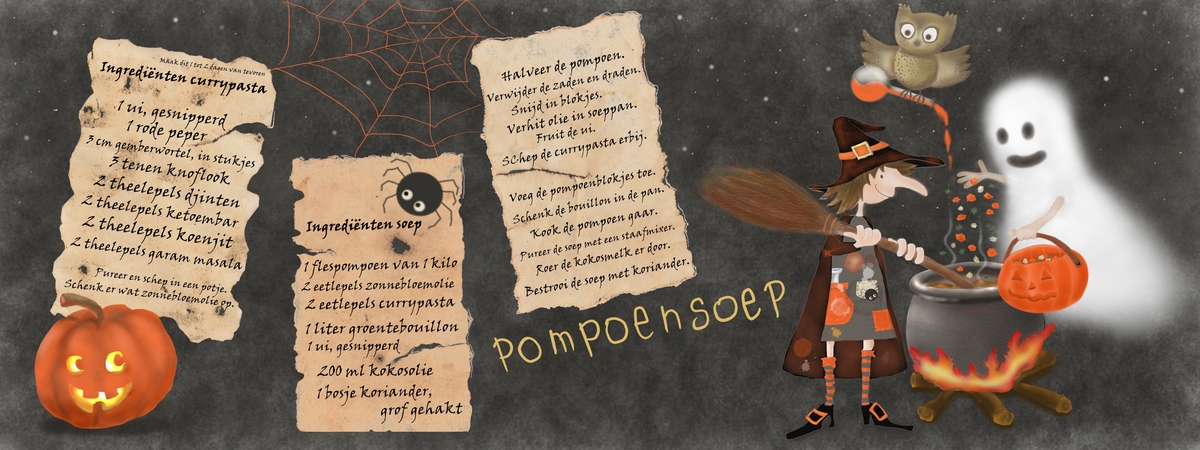 Maak dit 1 tot 2 dagen van tevoren
Ingrediënten currypasta
1 ui, gesnipperd
1 rode peper
3 cm gemberwortel, in stukjes
3 tenen knoflook
2 theelepels djinten
2 theelepels ketoembar
2 theelepels koenjit
2 theelepels garam masala
Pureer en schep in een potje.
Schenk er wat zonnebloemolie op.
Ingrediënten soep
1 flespompoen van 1 kilo
2 eetlepels zonnebloemolie
2 eetlepels currypasta
1 liter groentebouillon
1 ui, gesnipperd
200 ml kokosolie
1 bosje koriander,
grof gehakt
Halveer de pompoen.
Verwijder de zaden en draden.
Snijd in blokjes.
Verhit olie in soeppan.
Fruit de ui.
SChep de currypasta erbij.
Voeg de pompoenblokjes toe.
Schenk de bouillon in de pan.
Kook de pompoen gaar.
Pureer de soep met een staafmixer.
Roer de kokosmelk er door.
Bestrooi de soep met koriander.
pompoensoep